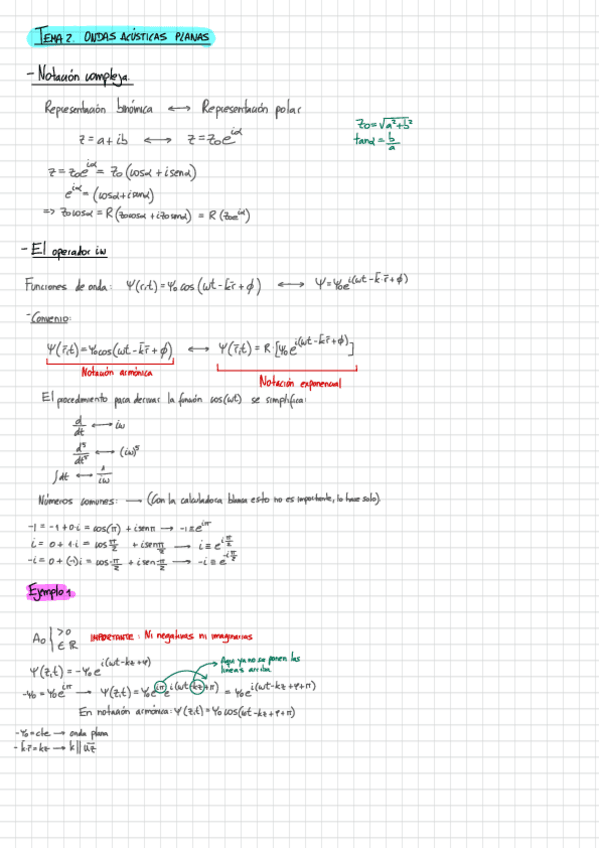 TEMA 2. ONDAS ACÚSTICAS PLANAS
- Notación compleja.
Representación binómica ⟷ Representación polar
z = a + ib ⟷ z = z₀e^{iα}
z₀ = √(a² + b²)
tanα = b/a
z = z₀e^{iα} = z₀ (cosα + i senα)
e^{iα} = (cosα + i senα)
=> z₀cosα = R (z₀cosα + i z₀senα) = R (z₀e^{iα})
- El operador iω
Funciones de onda: Ψ(r,t) = Ψ₀ cos (ωt - k̄r̄ + ϕ) ⟷ Ψ = Ψ₀e^{i(ωt - k̄·r̄ + ϕ)}
- Convenio:
Ψ(r̄,t) = Ψ₀cos(ωt - k̄r̄ + ϕ) ⟷ Ψ(r̄,t) = R [Ψ₀e^{i(ωt - k̄r̄ + ϕ)}]
Notación armónica
Notación exponencial
El procedimiento para derivar la función cos(ωt) se simplifica:
d/dt ⟷ iω
d⁵/dt⁵ ⟷ (iω)⁵
∫dt ⟷ 1/iω
Números comunes: ⟶ (Con la calculadora blanca esto no es importante, lo hace solo).
-1 = -1 + 0·i = cos(π) + i senπ ⟶ -1 ≡ e^{iπ}
i = 0 + 1·i = cos π/2 + i sen π/2 ⟶ i ≡ e^{iπ/2}
-i = 0 + (-1)i = cos -π/2 + i sen -π/2 ⟶ -i ≡ e^{-iπ/2}
Ejemplo 1
A₀ | >0
∈ ℝ
IMPORTANTE: Ni negativas ni imaginarias
Aquí ya no se ponen las
líneas arriba
Ψ(z,t) = -Ψ₀e^{i(ωt - kz + φ)}
-Ψ₀ = Ψ₀e^{iπ} ⟶ Ψ(z,t) = Ψ₀e^{iπ}e^{i(ωt - kz + π)} = Ψ₀e^{i(ωt - kz + φ + π)}
En notación armónica: Ψ(z,t) = Ψ₀cos(ωt - kz + φ + π)
- Ψ₀ = cte ⟶ onda plana
- k̄·r̄ = kz ⟶ k ∥ ūz